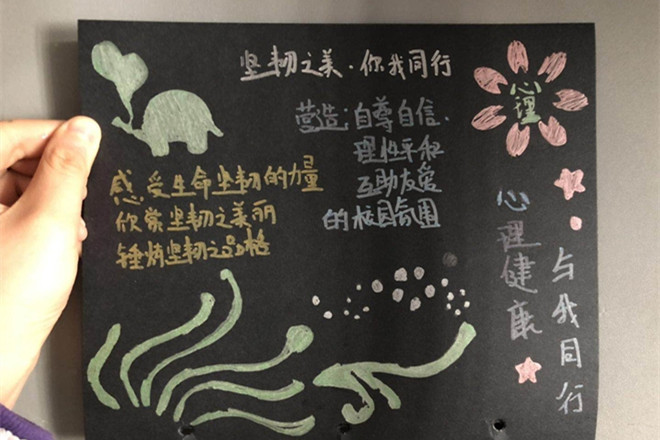 坚韧之美·你我同行
心理
营造:自尊自信、
理性平和
互助友爱
的校园氛围
感受生命坚韧的力量
欣赏坚韧之美丽
锤炼坚韧之品格
心理健康
与我同行